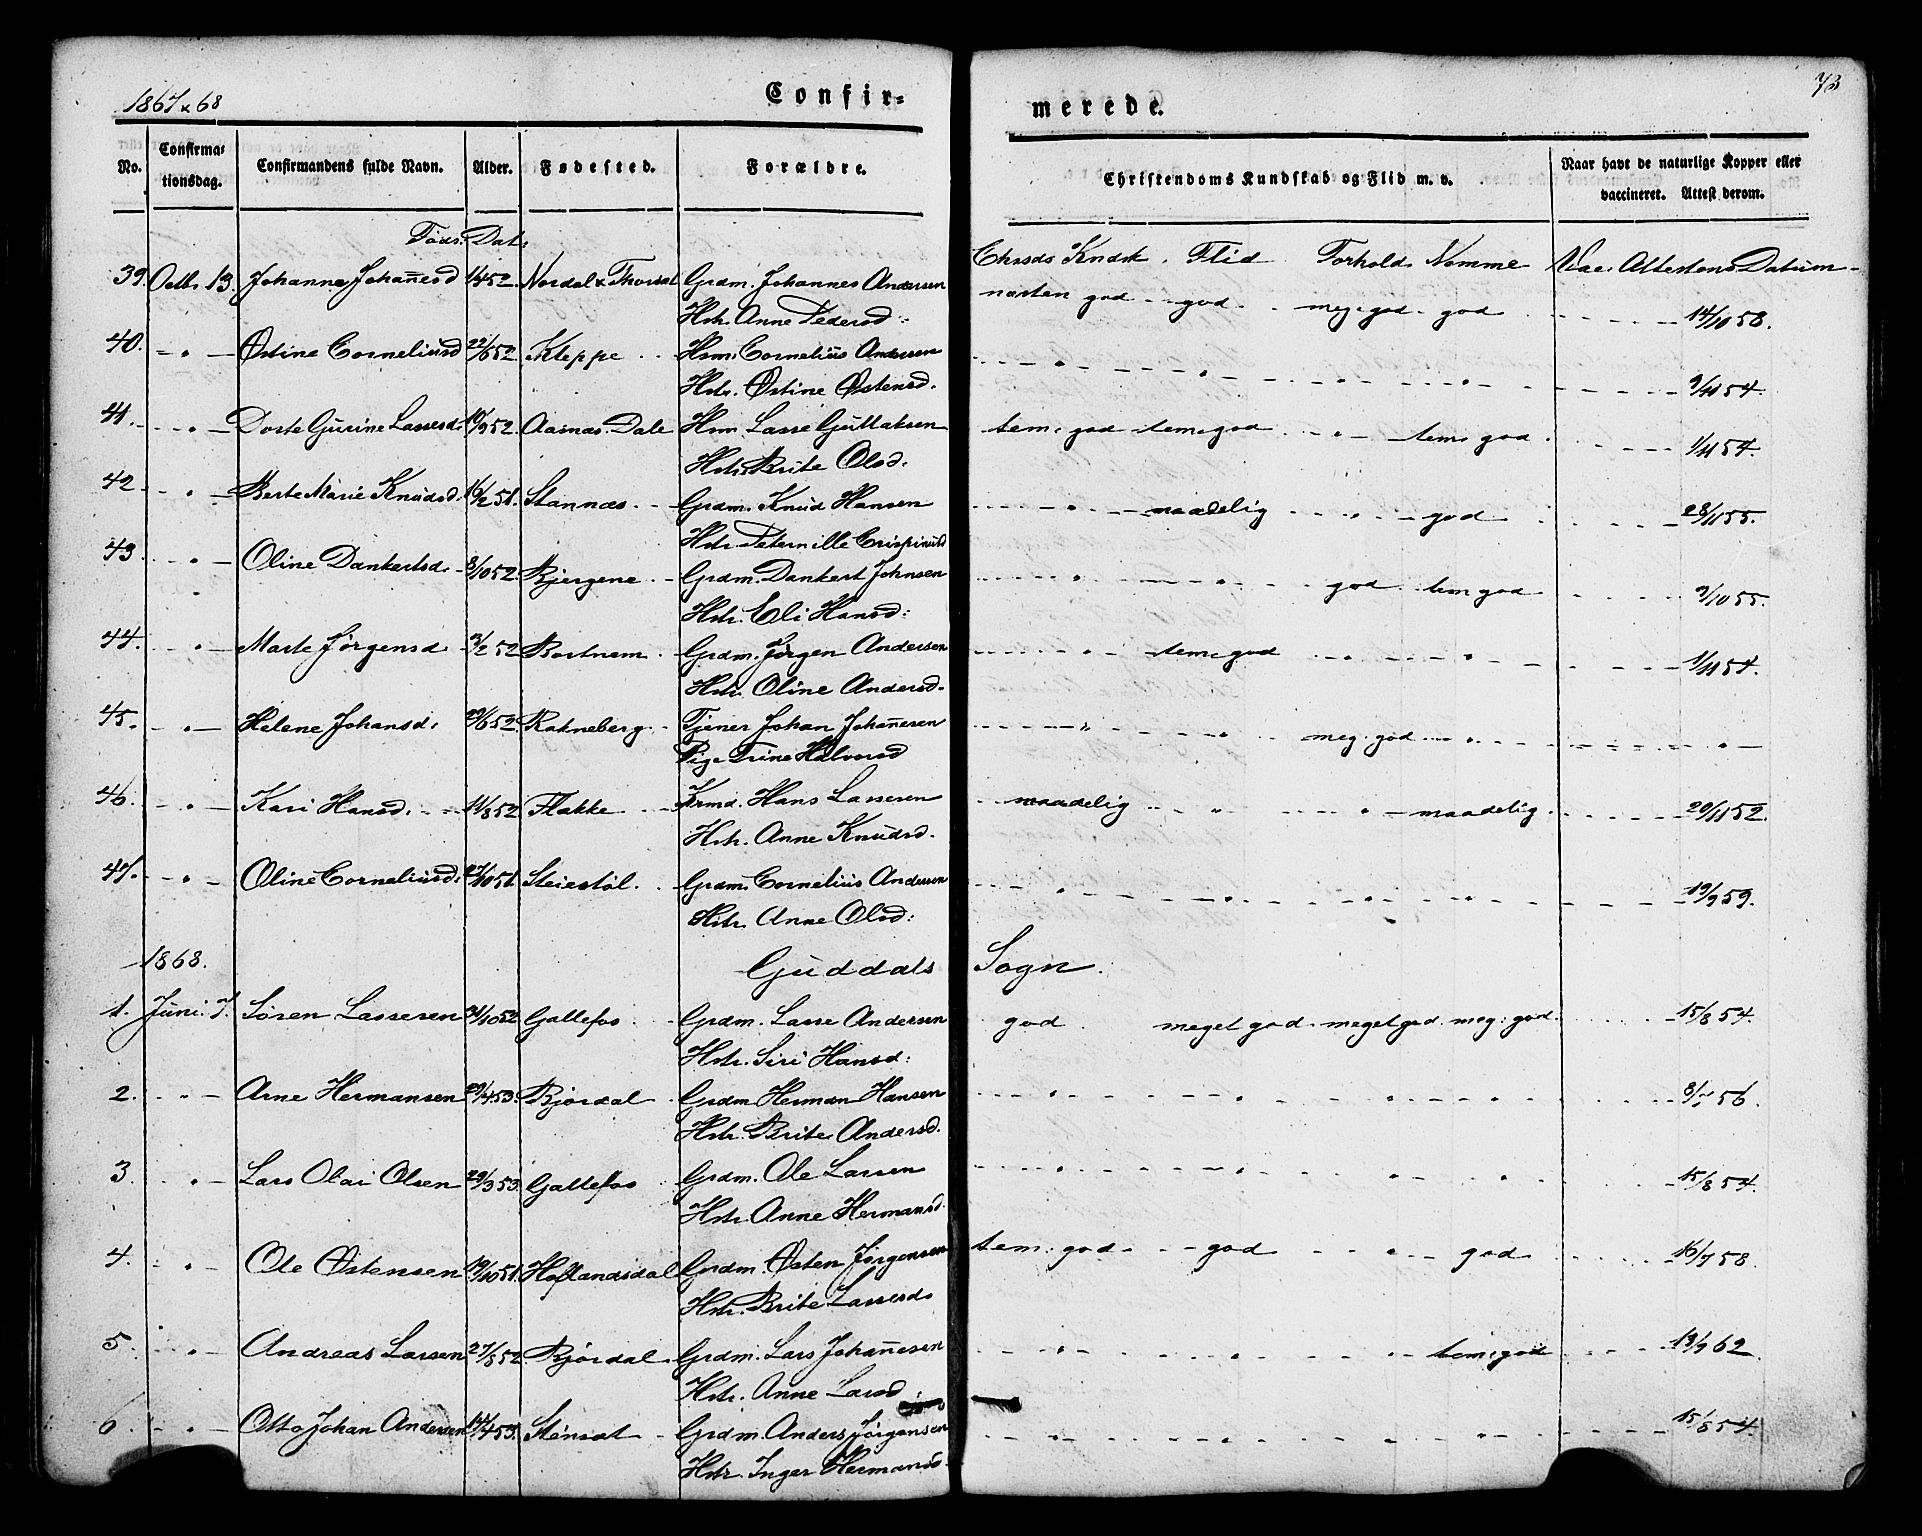 1867 & 68
Confir-
merede.
73
No.
Confirma-
tionsdag.
Confirmandens fulde Navn.
Alder.
Fødested.
Forældre.
Christendoms Kundskab og Flid m. v.
Naar havt de naturlige Kopper eller
vaccineret. Attest derom.
Føds. Dat:
Chrsds Kndsk. Flid Forhold. Nemme Vac. Attestens Datum
39. Octb. 13. Johanne Johan̄esd Nordal & Thorsat Grdm. Johannes Andersen
næsten god god meg. god god 14/10 58.
Hstr. Anne Pedersd:
40. - " - Østine Corneliusd 22/6 52. Kleppe Hsm. Cornelius Andersen
" " " " 9/11 54.
Hstr. Østine Østensd.
41. - " - Dorte Gurine Lassesd. 10/9 52. Aasnæs Dale Hsm. Lasse Guttaksen
tem. god tem. god " tem. god. 1/11 54.
Hstr. Brite Olsd.
42 - " - Berte Marie Knudsd. 16/2 51. Stannæs Grdm. Knud Hansen
" maadelig " god 28/11 55.
Hstr. Peternille Crispinusd
43 " Oline Dankertsd. 8/10 52. Bjergene Grdm. Dankert Johnsen
" " god tem god 9/10 55.
Hstr. Eli Hansd:
44. - " - Marte Jørgensd 3/2 52 Bortnem Grdm. Jørgen Andersen
" tem. god " " 1/11 54.
Hstr. Oline Andersd.
45. - " - Helene Johansd. 29/6 52. Rakneberg Tjener Johan Johan̄esen
" " meg. god " "
Pige Trine Halvorsd
46. - " - Kari Hansd. 11/8 52 Flakke Hans Lassesen
maadelig " " maadelig. 20/11 52.
Hstr. Anne Knudsd.
47. - " - Oline Corneliusd. 27/10 51. Steiestøl. Grdm. Cornelius Andersen
" " " " 19/9 59.
Hstr. Anne Olsd:
1868. Guddals Sogn.
1. Juni. 7. Søren Lassesen 31/10 52 Gallefos Grdm. Lasse Andersen
god meget god. meget god meg. god. 15/8 54.
Hstr. Siri Hansd:
2. - " - Arne Hermansen 29/4 53. Bjørdal Grdm Herman Hansen
" " " " 8/7 56.
Hstr. Brite Andersd.
3 " - Lars Olai Olsen 29/3 53. Gallefos Grdm. Ole Larsen
" " " " 15/8 54.
Hstr. Anne Hermansd
4. " Ole Østensen 19/10 51. Høflandsdal Grdm. Østen Jørgensen
tem. god. god " god. 16/7 58.
Hstr. Brite Lassesd.
5. " - Andreas Larsen 27/8 52 Bjørdal. Grdm. Lars Johan̄esen
" " " tem. god 19/9 62.
Hstr. Anne Larsd
6. - " - Otto Johan Andersen 14/4 53. Stensat Grdm. Anders Jørgensen
" " " " 15/8 54.
Hstr. Inger Hermansd.